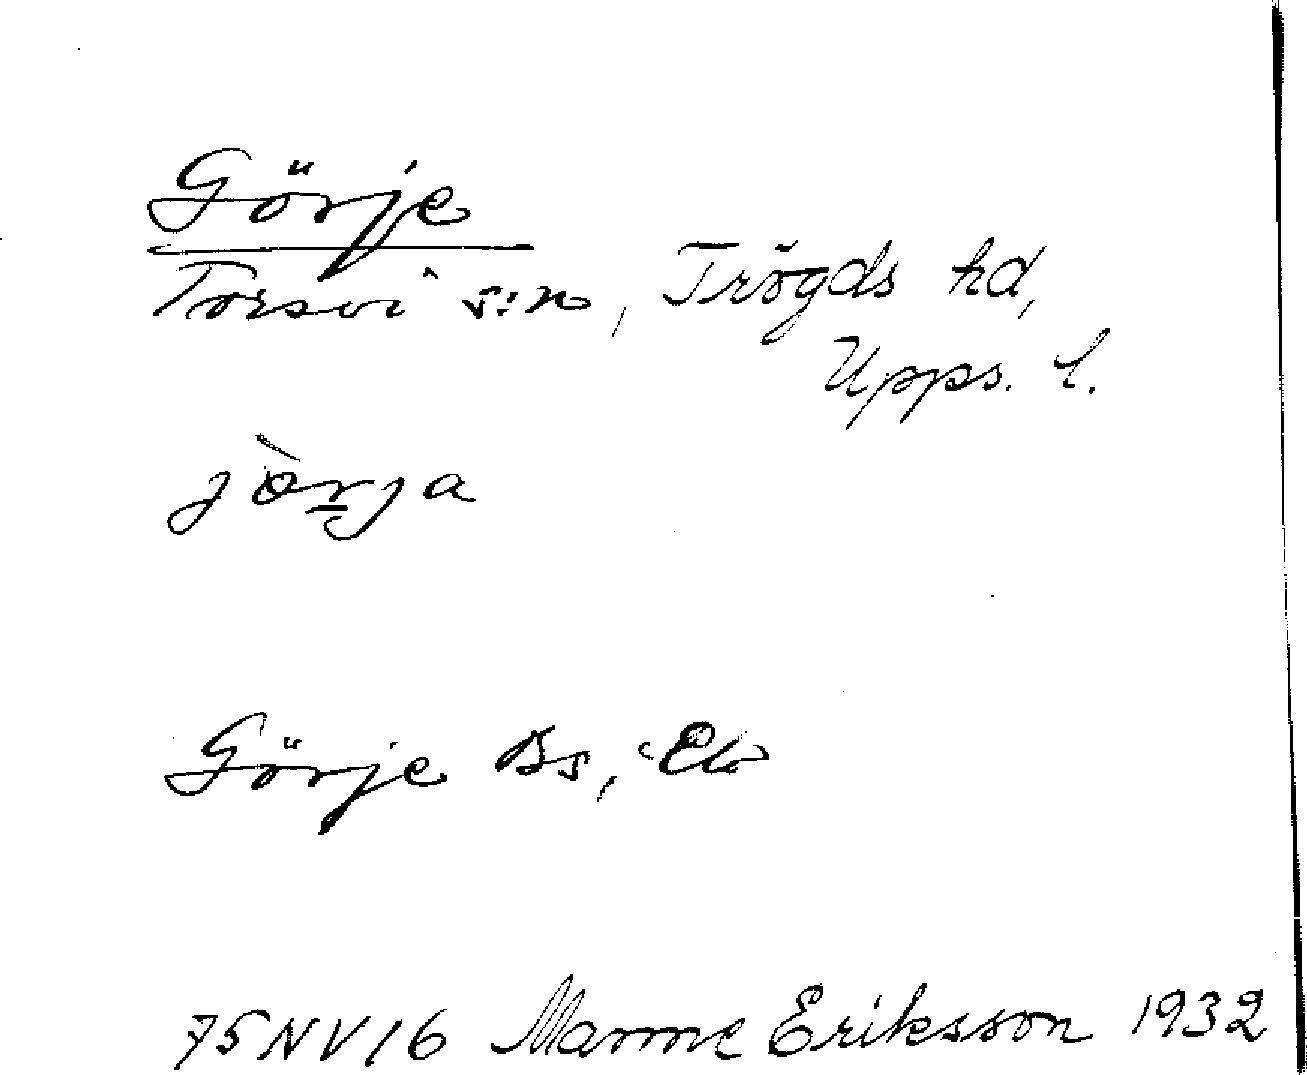 Görje
Torsvi s:n, Trögds hd,
Upps. l.
jòrja
Görje Bs, Ek
75NV16 Manne Eriksson 1932